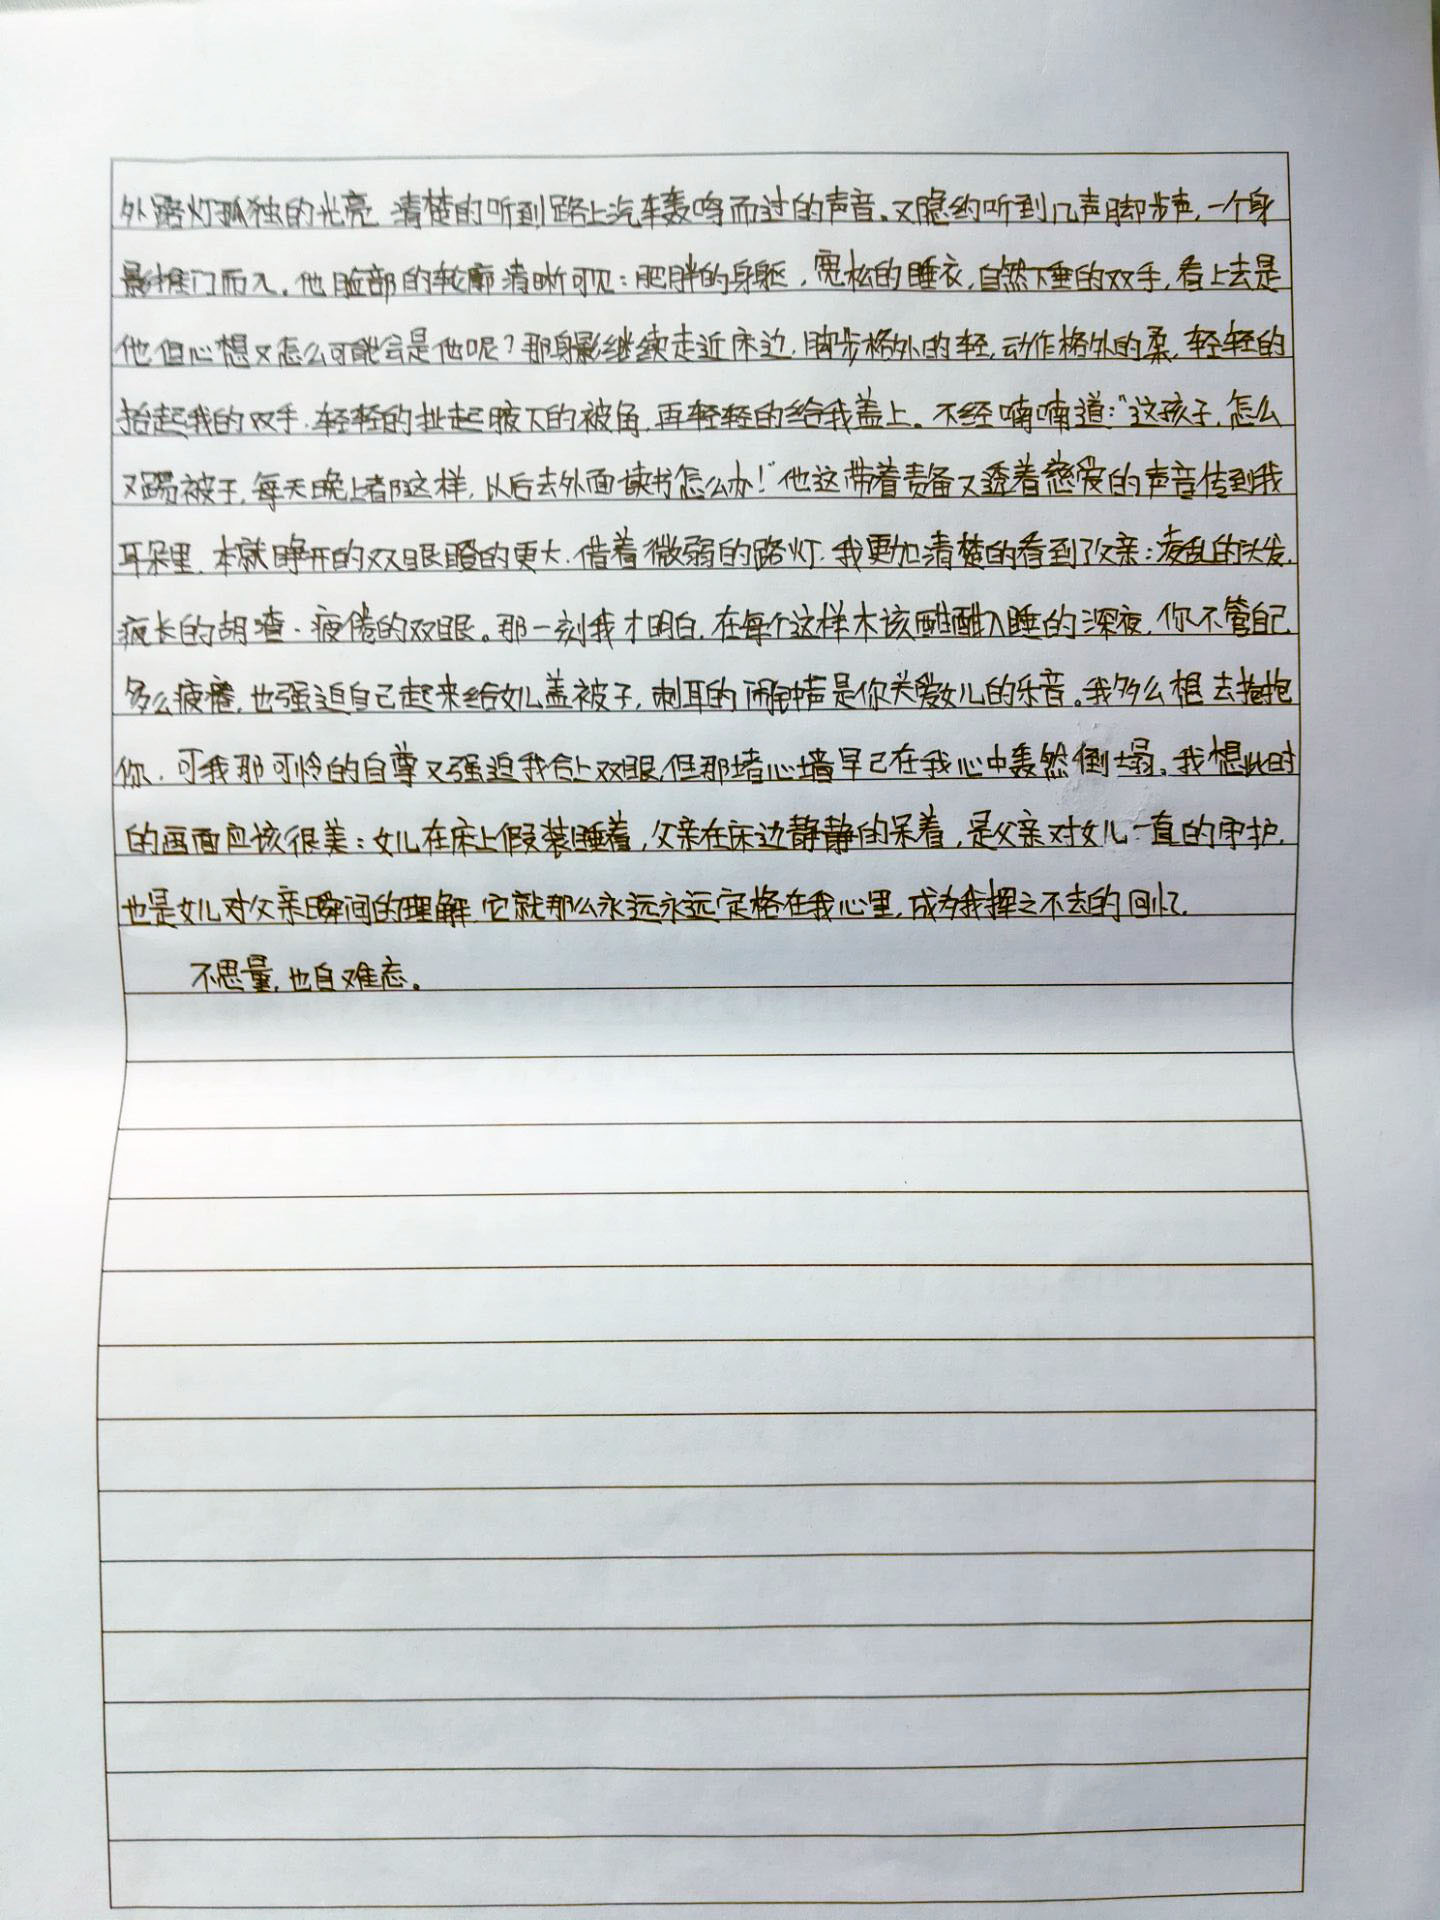 外路灯孤独的光亮，清楚的听到路上汽车轰鸣而过的声音。又隐约听到几声脚步声，一个身
影推门而入。他脸部的轮廓清晰可见：肥胖的身躯，宽松的睡衣，自然下垂的双手，看上去是
他，但心想又怎么可能会是他呢？那身影继续走近床边，脚步格外的轻，动作格外的柔，轻轻的
抬起我的双手，轻轻的扯起腋下的被角，再轻轻的给我盖上。不经喃喃道：“这孩子，怎么
又踢被子，每天晚上都这样，以后去外面读书怎么办！”他这带着责备又透着慈爱的声音传到我
耳朵里，本就睁开的双眼瞪的更大，借着微弱的路灯，我更加清楚的看到了父亲：凌乱的头发，
疯长的胡渣，疲倦的双眼。那一刻我才明白，在每个这样本该酣酣入睡的深夜，你不管自己
多么疲惫，也强迫自己起来给女儿盖被子，刺耳的闹钟声是你关爱女儿的乐音。我多么想去抱抱
你，可我那可怜的自尊又强迫我合上双眼，但那堵心墙早已在我心中轰然倒塌。我想此时
的画面应该很美：女儿在床上假装睡着，父亲在床边静静的呆着，是父亲对女儿一直的守护，
也是女儿对父亲瞬间的理解，它就那么永远永远定格在我心里，成为我挥之不去的回忆，
不思量，也自难忘。